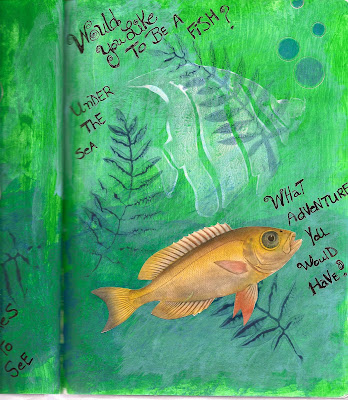 WoulD
You Like
To BE A FiSH?
UnDER
THE
SeA
WHaT
ADVENTURE
You
WoulD
HaVe!
eS
To
SeE